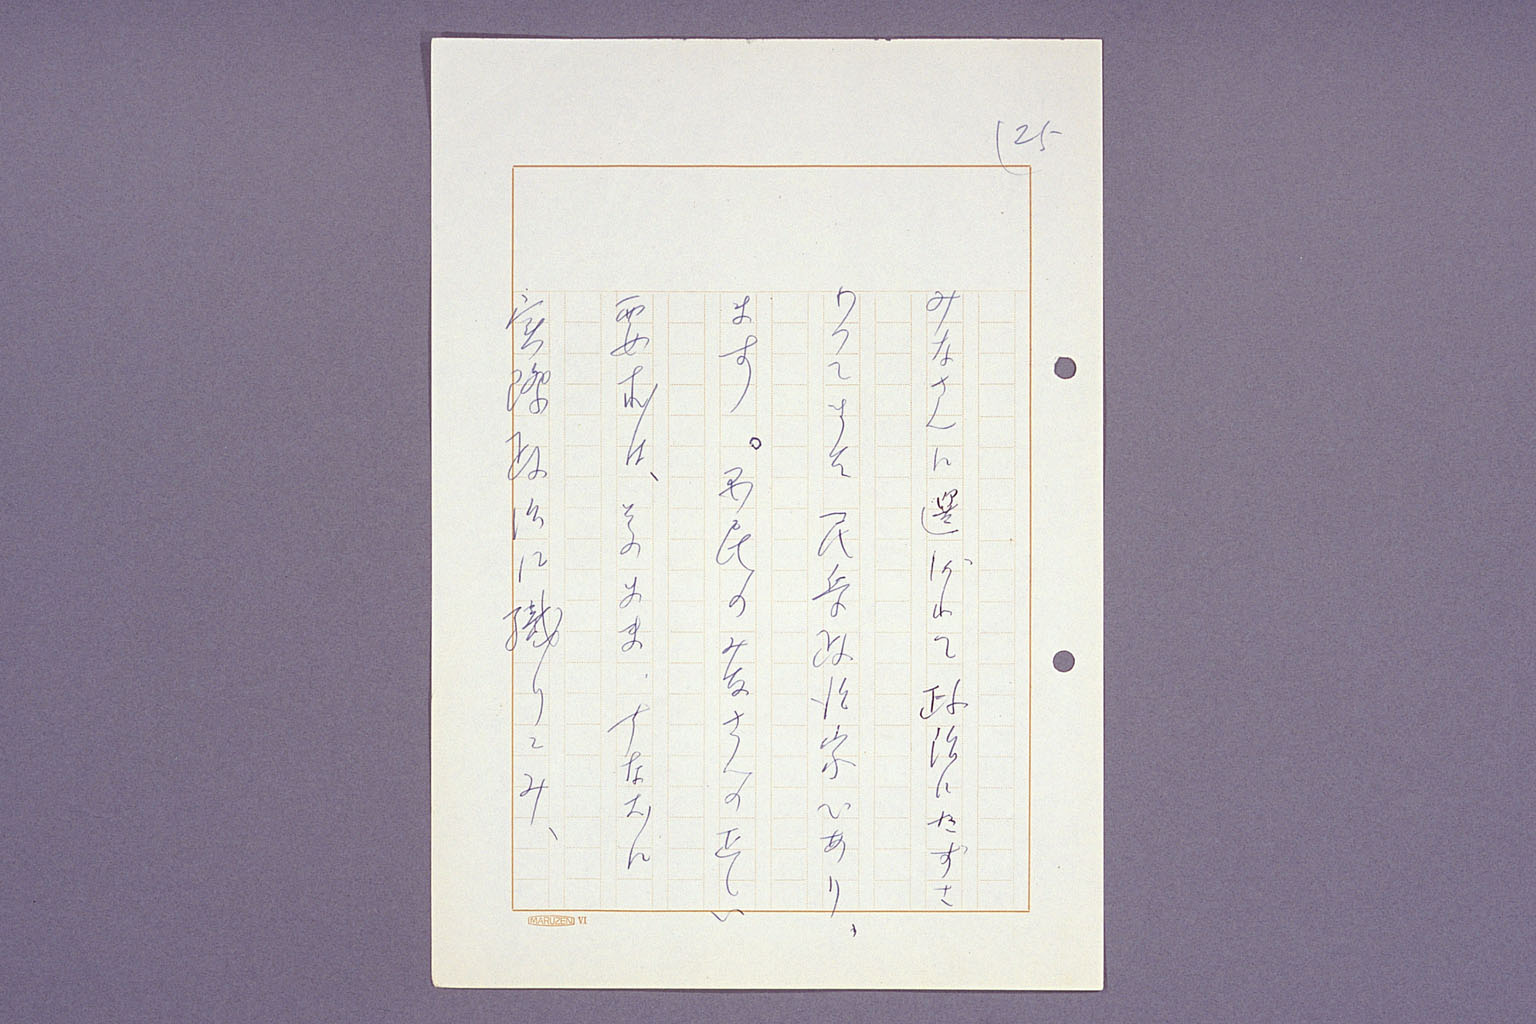 25
みなさんに選ばれて政治にたずさ
わってまいた民主政治家であり、
ます。国民のみなさんの正しい
要求は、そのまま、すなおに
実際政治に織りこみ、
MARUZEN VI